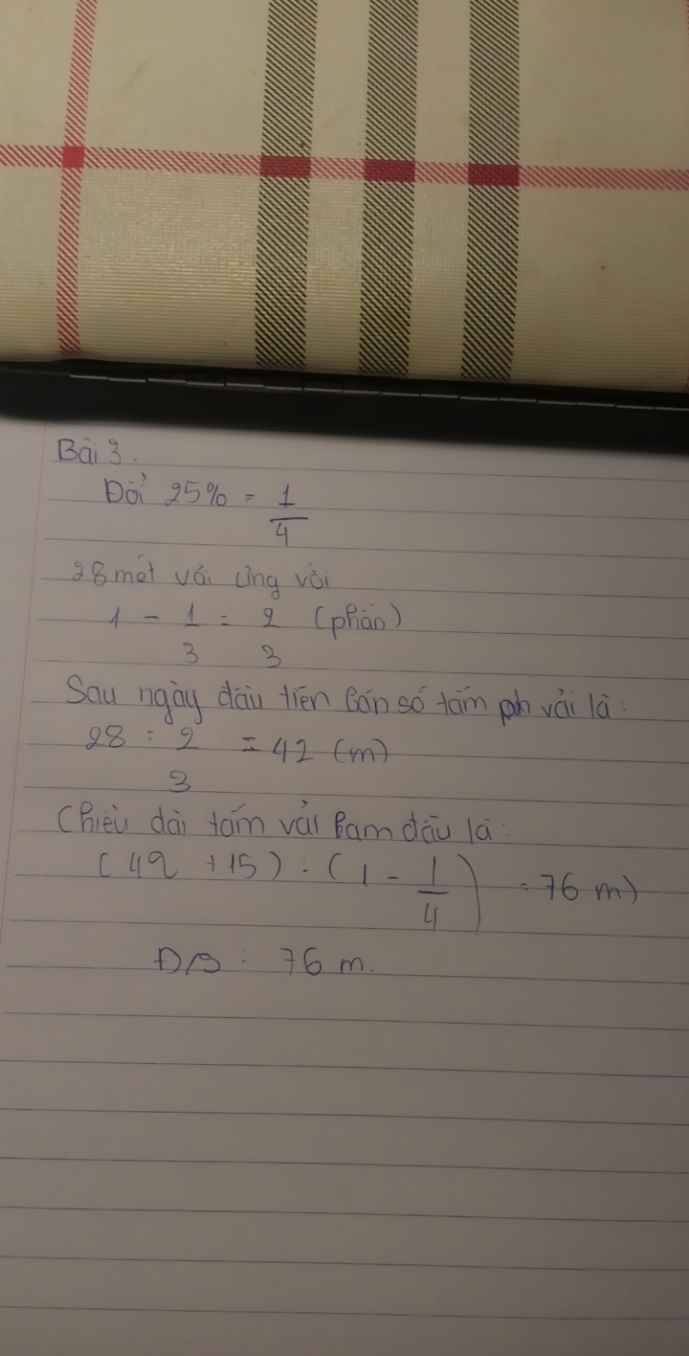 Bài 3.
Đổi 25% = 1/4
28 mét vải ứng với
1 - 1/3 = 2/3 (phần)
Sau ngày đầu tiên bán số tấm vải là:
28 : 2/3 = 42 (m)
Chiều dài tấm vải ban đầu là:
(42 + 15) : (1 - 1/4) = 76 m)
ĐS: 76 m.